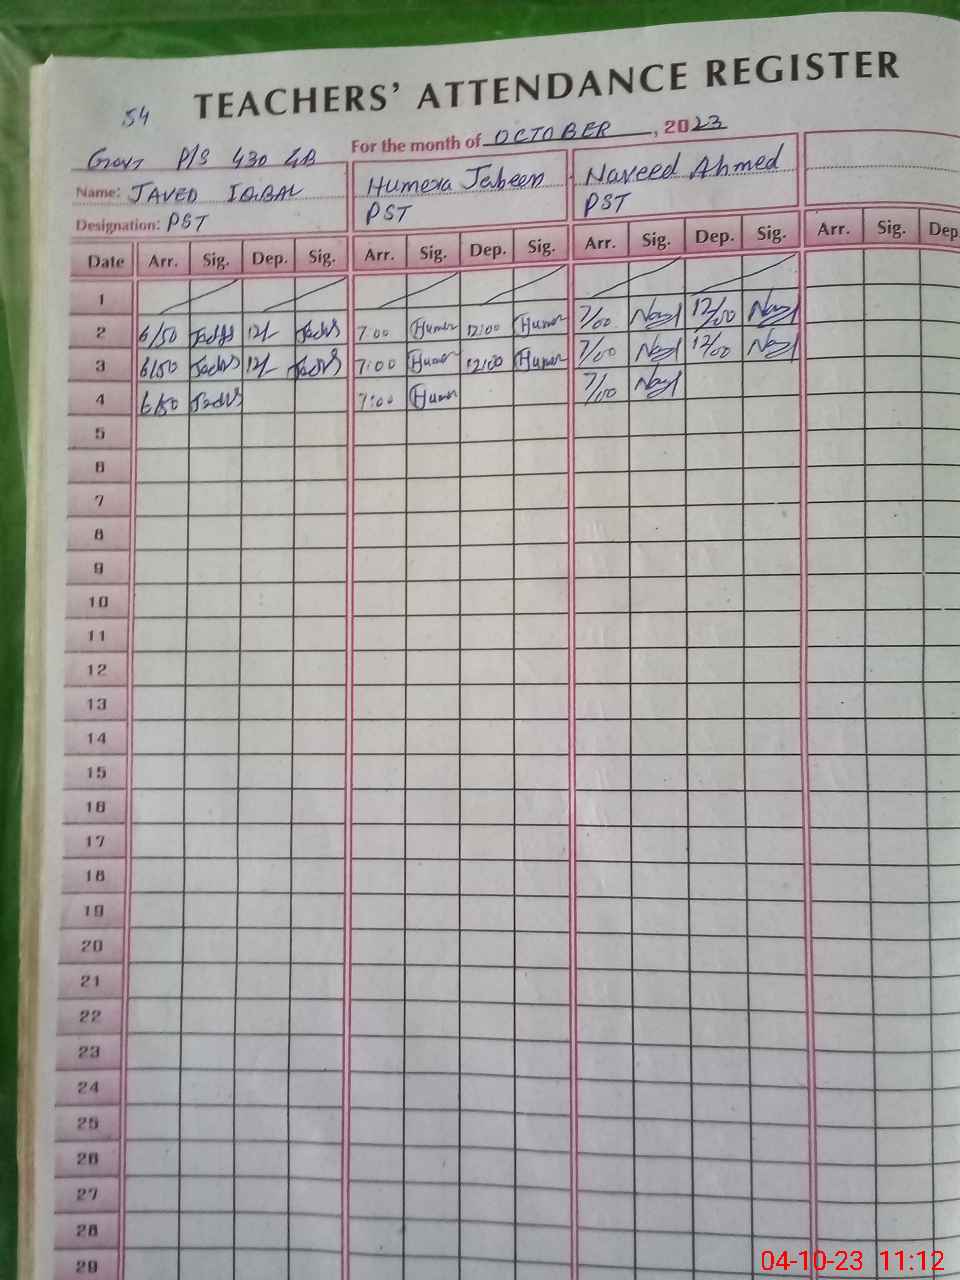 54
TEACHERS' ATTENDANCE REGISTER
For the month of OCTOBER, 2023
Govt P/S 430 GB
Name: JAVED IQBAL Humera Jabeen Naveed Ahmed
Designation: PST PST PST
Date Arr. Sig. Dep. Sig. Arr. Sig. Dep. Sig. Arr. Sig. Dep. Sig. Arr. Sig. Dep.
1
2 6/50 12/- 7:00 Humer 12:00 Humer 7/00 12/00
3 6/50 12/- 7:00 Humer 12:00 Humer 7/00 12/00
4 6/50 7:00 Humer 7/00
5
6
7
8
9
10
11
12
13
14
15
16
17
18
19
20
21
22
23
24
25
26
27
28
29
04-10-23 11:12